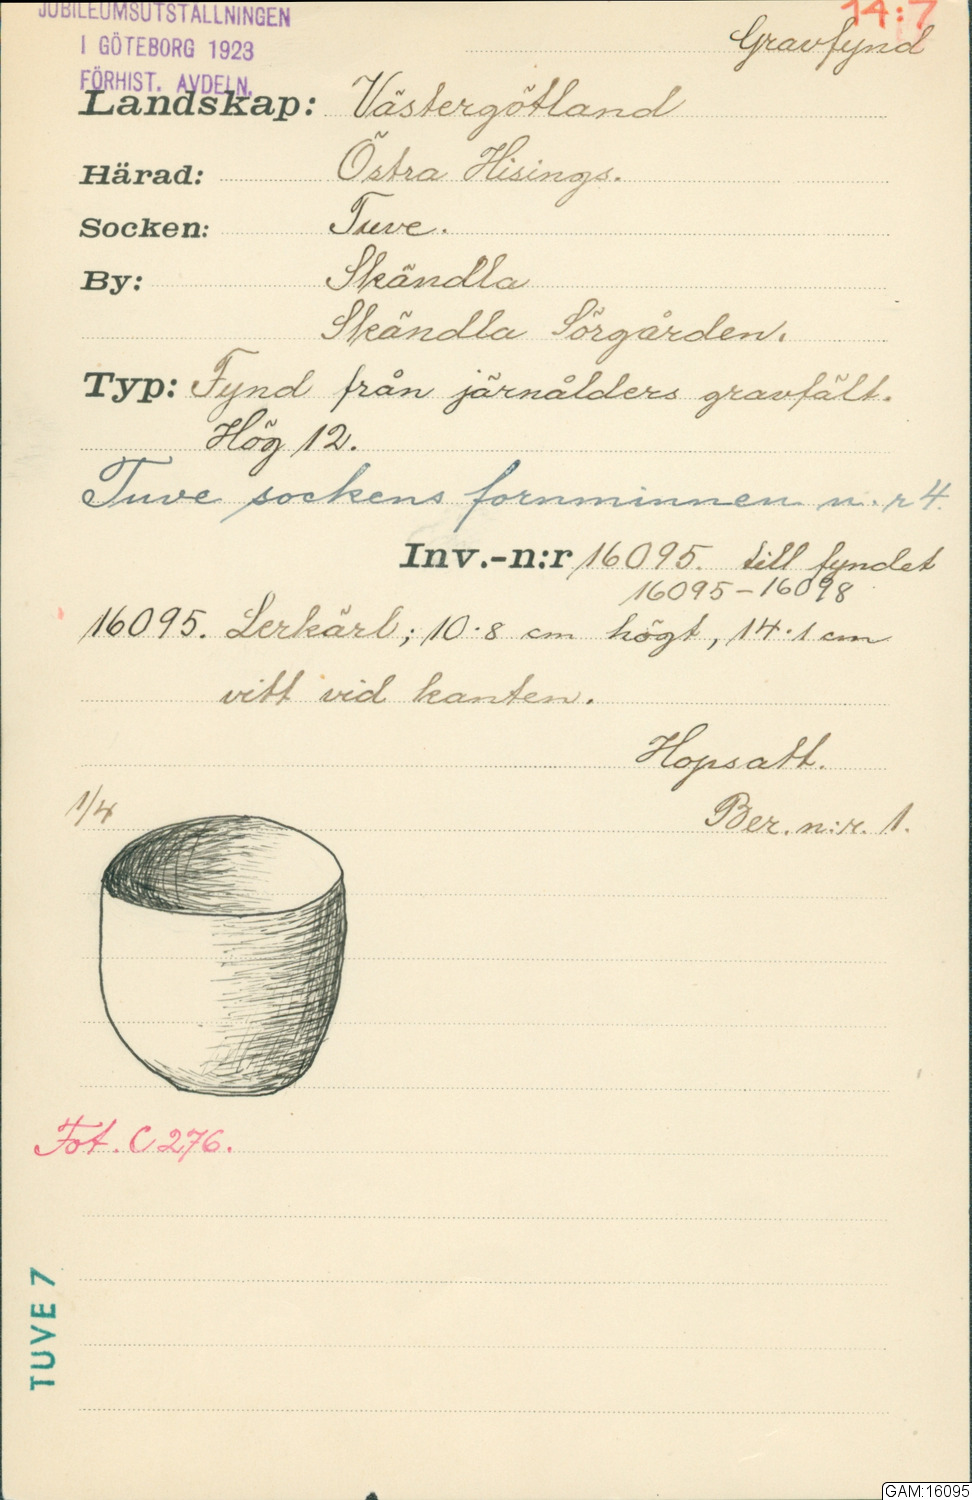 JUBILEUMSUTSTÄLLNINGEN
I GÖTEBORG 1923
FÖRHIST. AVDELN.
14:7
Gravfynd
Landskap: Västergötland
Härad: Östra Hisings.
Socken: Tuve.
By: Skändla
Skändla Sörgården.
Typ: Fynd från järnålders gravfält.
Hög 12.
Tuve sockens fornminnen n:r 4.
Inv.-n:r 16095. till fyndet
16095-16098
16095. Lerkärl; 10.8 cm högt, 14.1 cm
vitt vid kanten.
Hopsatt.
1/4
Ber. n:r. 1.
Fot. C 276.
TUVE 7
GAM:16095